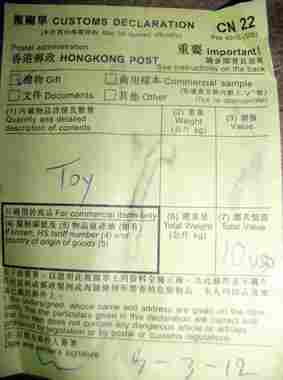 報關單 CUSTOMS DECLARATION
CN 22
May be opened officially
Postal administration
重要 Important!
香港郵政 HONGKONG POST
See instructions on the back
禮物 Gift
商用樣本 Commercial sample
文件 Documents
其他 Other
(Tick as appropriate)
(1) 內載物品詳情及數量
Quantity and detailed description of contents
(2) 重量
Weight
(公斤 kg)
(3) 價值
Value
Toy
只適用於商品 For commercial items only
If known, HS tariff number (4) and
country of origin of goods (5)
(6) 總重量
Total Weight
(公斤 kg)
(7) 總共價值
Total Value
10 USD
I, the undersigned, whose name and address are given on the item,
certify that the particulars given in this declaration are correct and
that this item does not contain any dangerous article or articles
prohibited by legislation or by postal or customs regulations.
Date and sender's signature
3-12